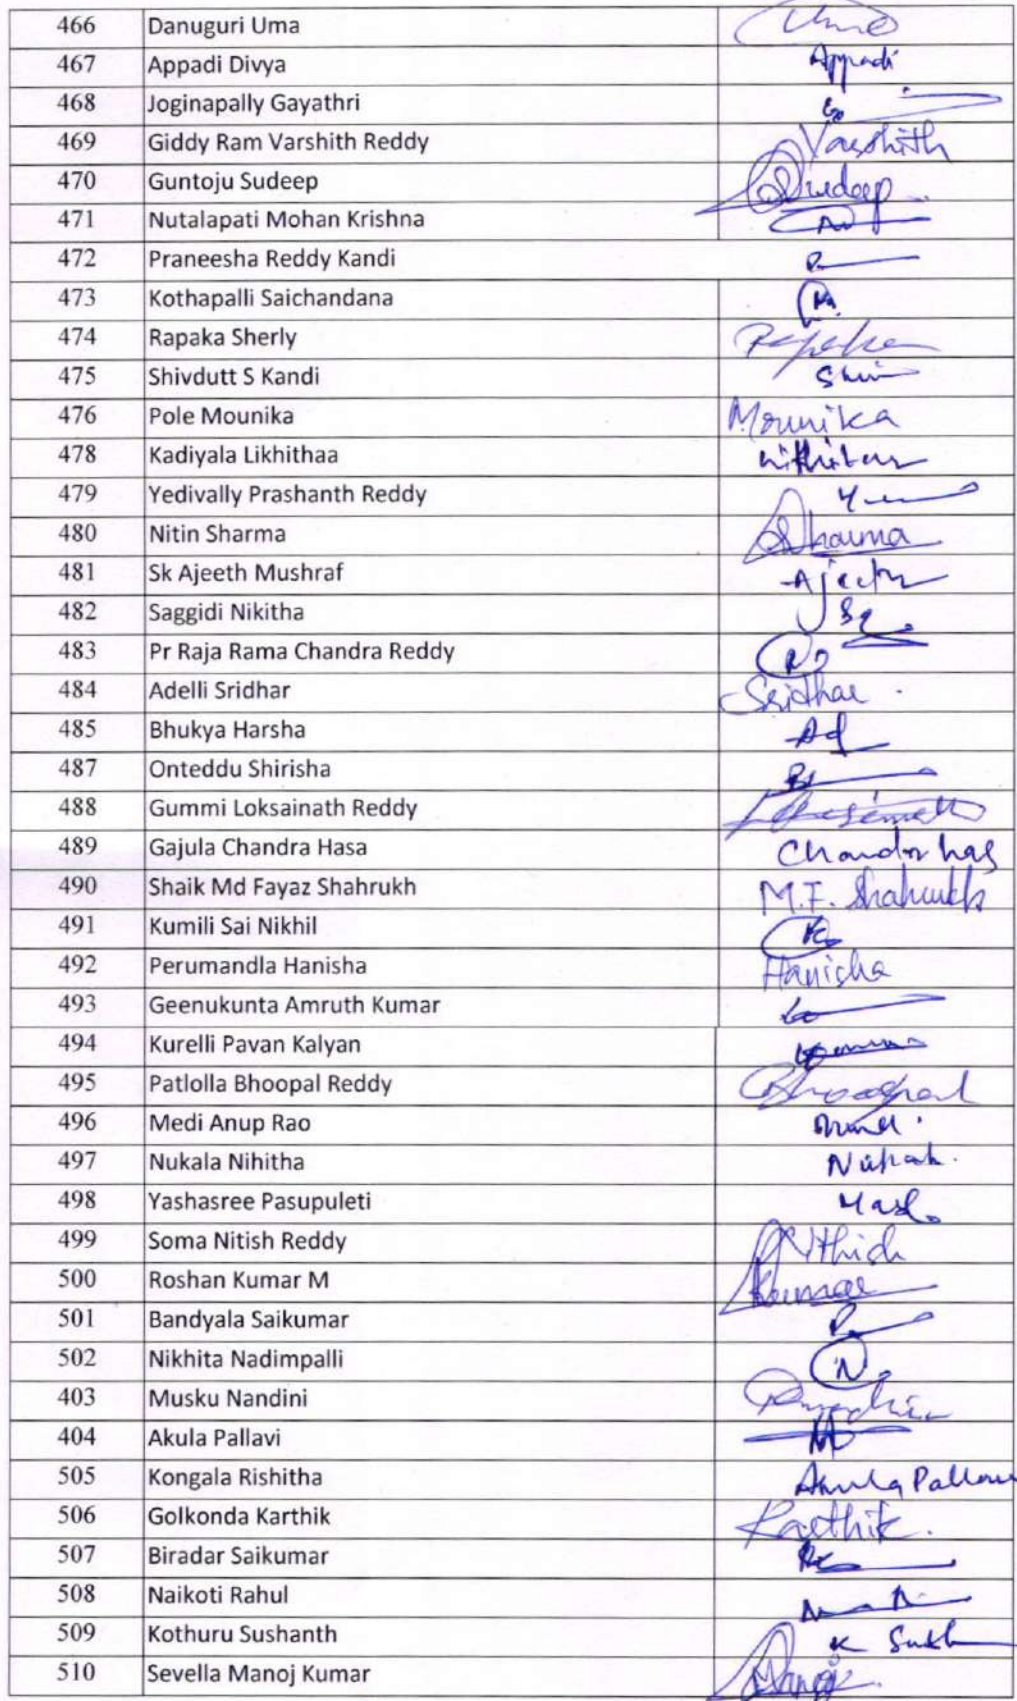 466 Danuguri Uma Uma
467 Appadi Divya Appadi
468 Joginapally Gayathri
469 Giddy Ram Varshith Reddy Varshith
470 Guntoju Sudeep Sudeep
471 Nutalapati Mohan Krishna
472 Praneesha Reddy Kandi
473 Kothapalli Saichandana
474 Rapaka Sherly Rapaka
475 Shivdutt S Kandi
476 Pole Mounika Mounika
478 Kadiyala Likhithaa
479 Yedivally Prashanth Reddy
480 Nitin Sharma Sharma
481 Sk Ajeeth Mushraf Ajeeth
482 Saggidi Nikitha
483 Pr Raja Rama Chandra Reddy
484 Adelli Sridhar Sridhar
485 Bhukya Harsha
487 Onteddu Shirisha
488 Gummi Loksainath Reddy
489 Gajula Chandra Hasa Chandra has
490 Shaik Md Fayaz Shahrukh M.F. Shahrukh
491 Kumili Sai Nikhil
492 Perumandla Hanisha Hanisha
493 Geenukunta Amruth Kumar
494 Kurelli Pavan Kalyan
495 Patlolla Bhoopal Reddy Bhoopal
496 Medi Anup Rao
497 Nukala Nihitha
498 Yashasree Pasupuleti
499 Soma Nitish Reddy Nithish
500 Roshan Kumar M Kumar
501 Bandyala Saikumar
502 Nikhita Nadimpalli N.
403 Musku Nandini
404 Akula Pallavi
505 Kongala Rishitha Akula Pallavi
506 Golkonda Karthik Karthik.
507 Biradar Saikumar
508 Naikoti Rahul
509 Kothuru Sushanth
510 Sevella Manoj Kumar Manoj